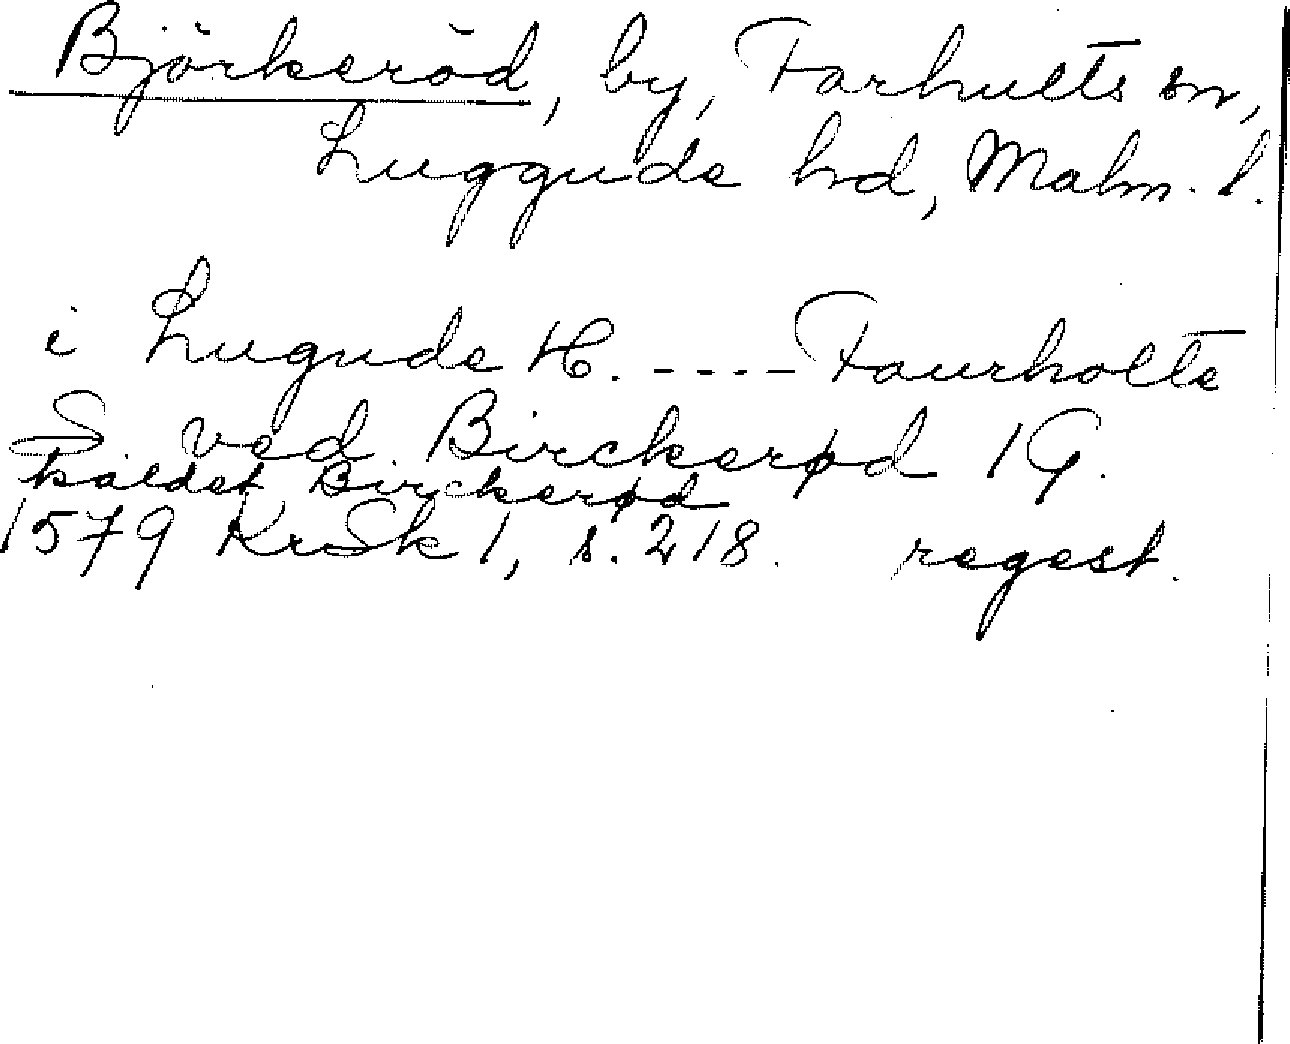 Björkeröd, by, Farhults sn,
Luggude hd, Malm. l.
i Lugude H. ---- Faurholts
S ved Birckerød 1 G.
kaldet Birckerød
1579 KrSk 1, s. 218. regest.